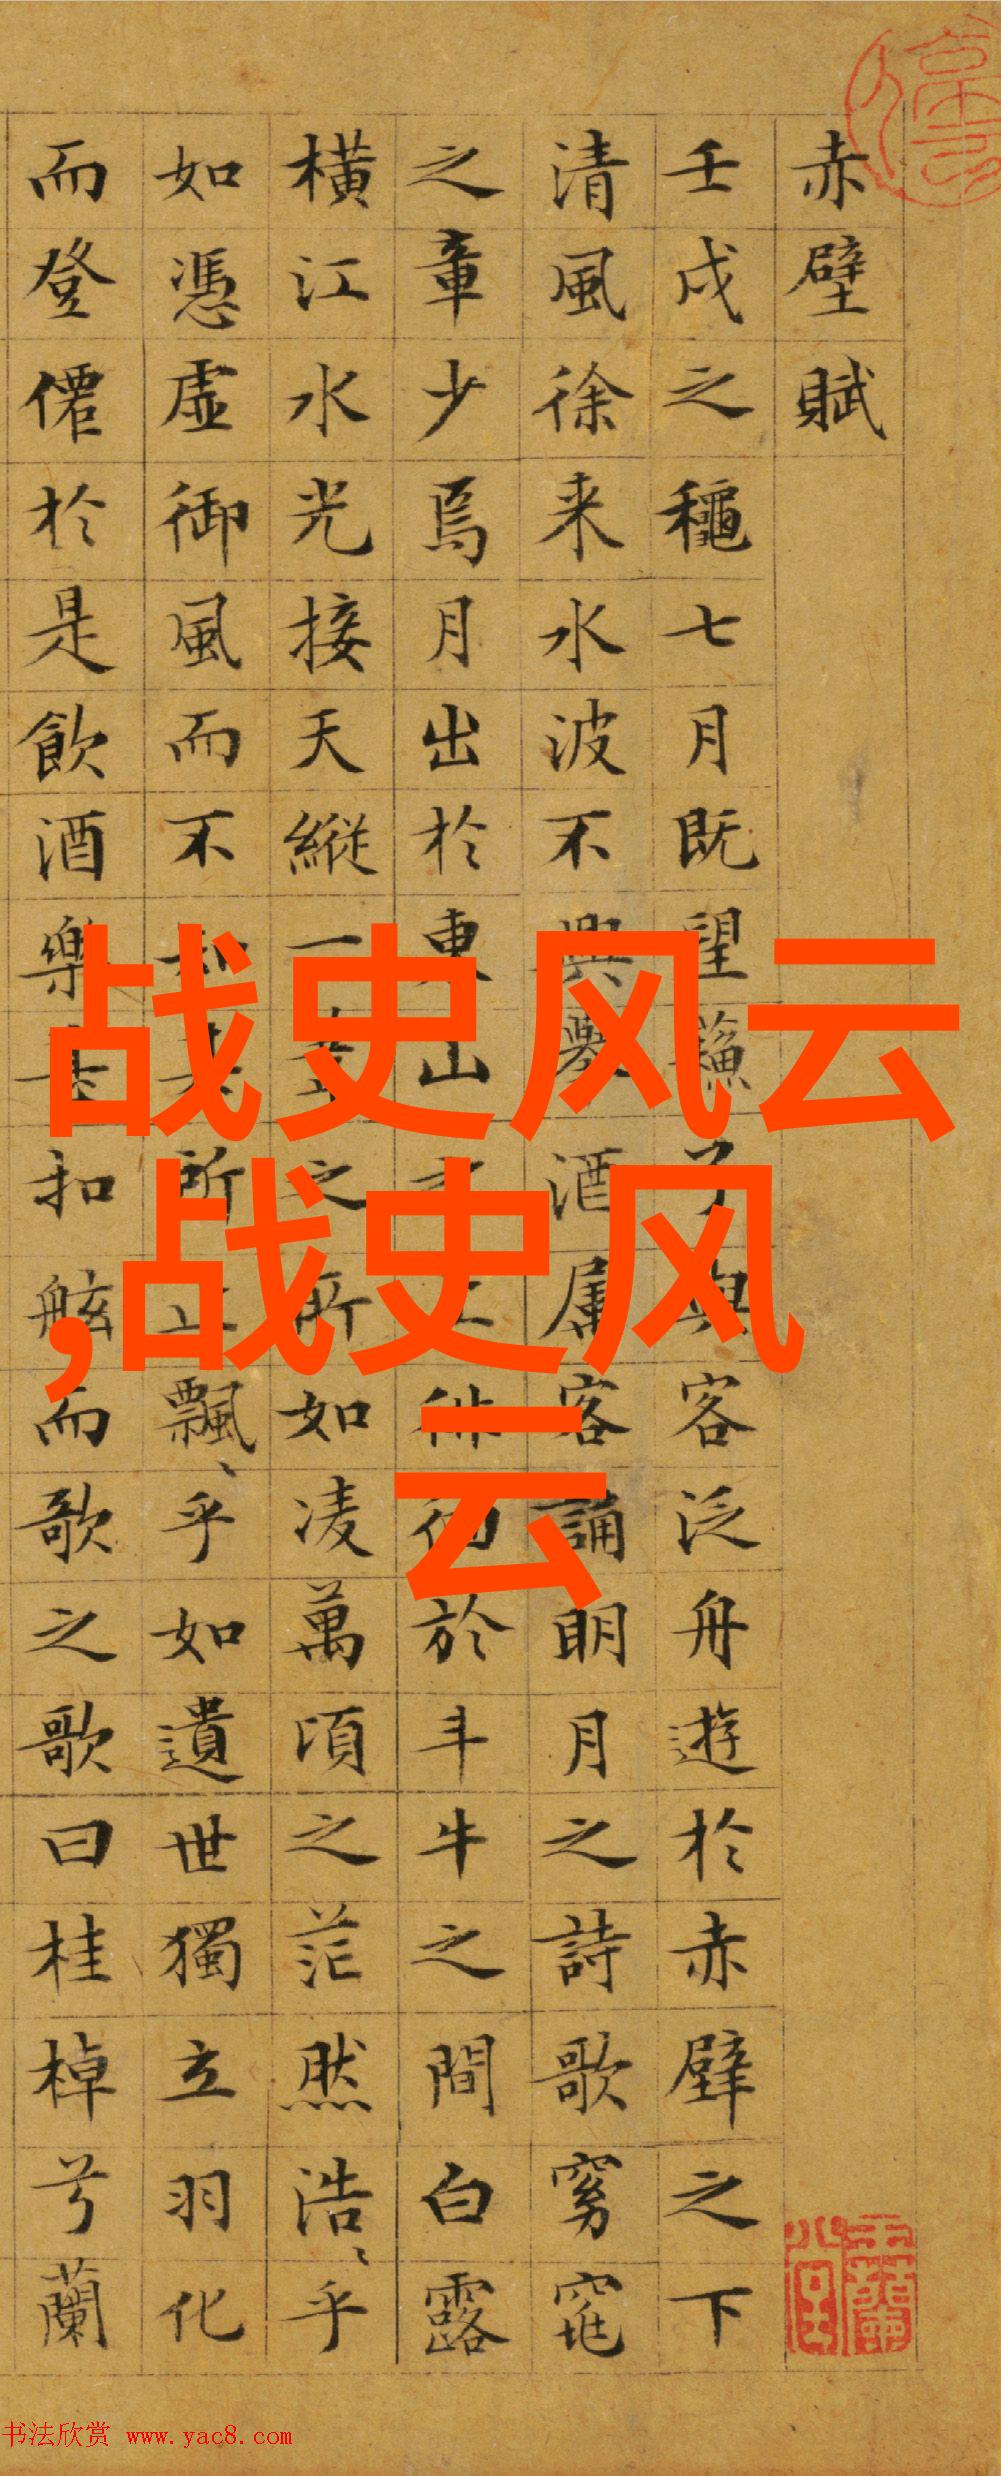 赤壁賦
壬戌之龝七月既望蘓子與客泛舟遊於赤壁之下
清風徐来水波不興舉酒屬客誦眀月之詩歌窈窕
之章少焉月出於東山之上徘徊於斗牛之間白露
横江水光接天縱一葦之所如凌萬頃之茫然浩〻乎
如憑虛御風而不知其所止飄〻乎如遺世獨立羽化
而登僊於是飲酒樂甚扣舷而歌之歌曰桂棹兮蘭
战史风云
,战史风
云
书法欣赏 www.yac8.com